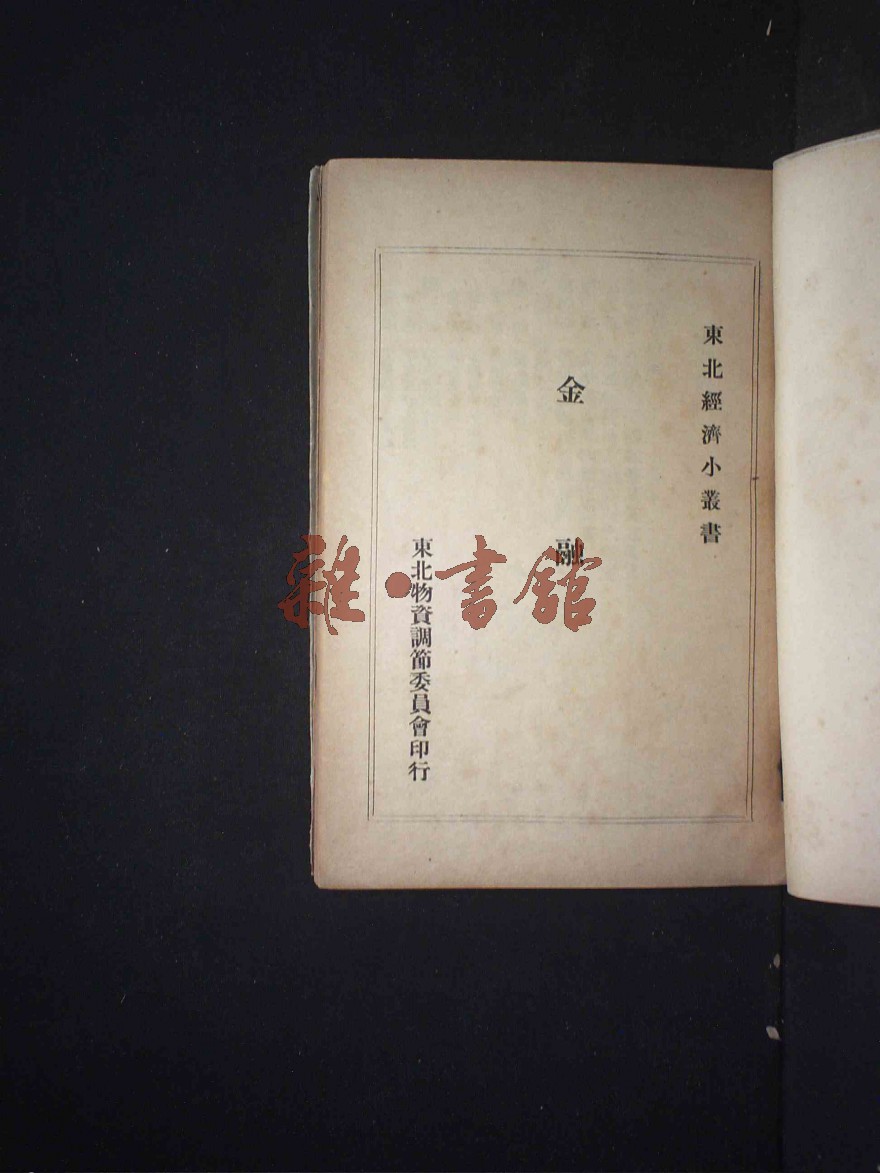 東北經濟小叢書
金融
東北物資調節委員會印行
雜·書館